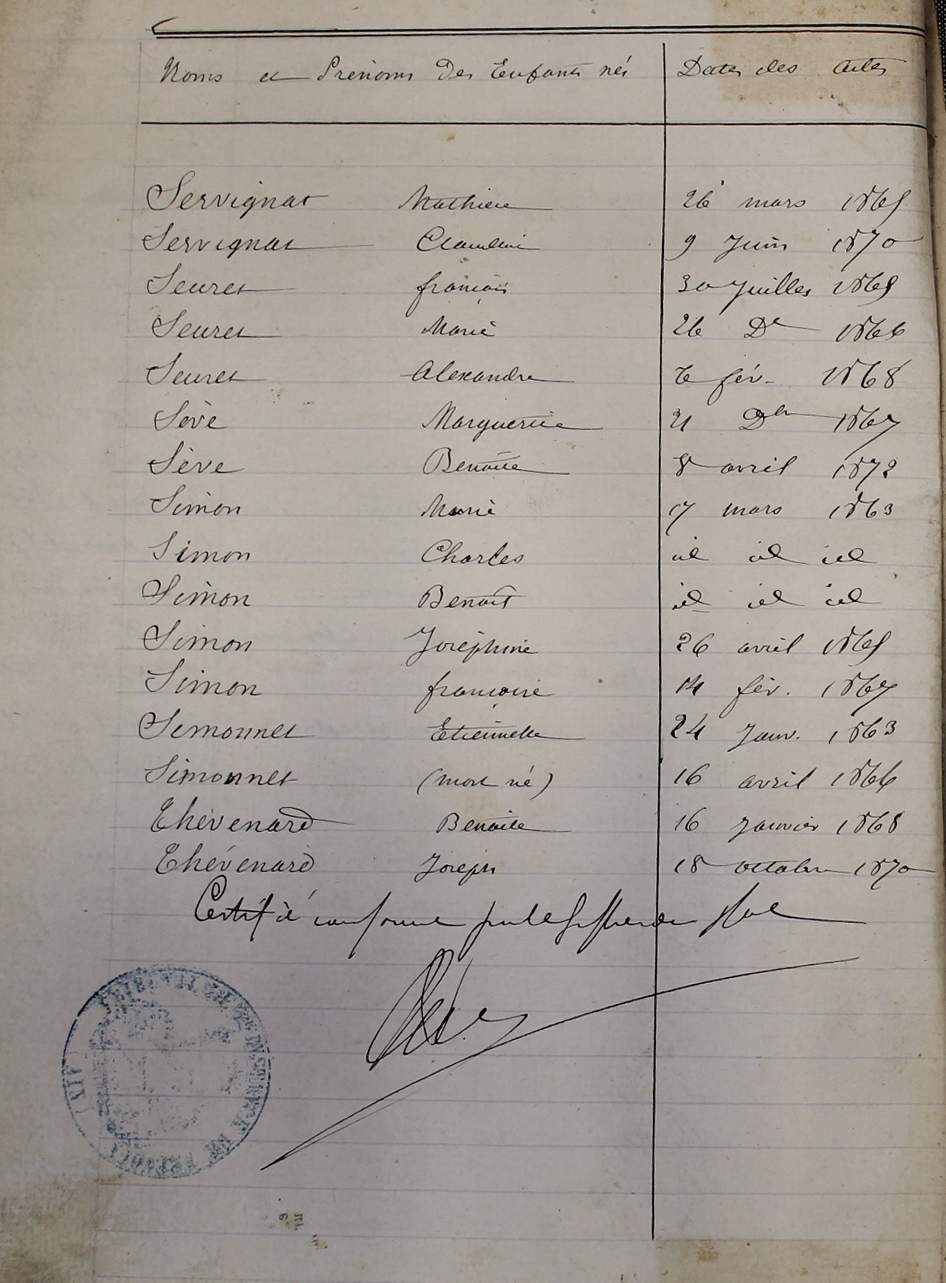 Noms et Prénoms des Enfants nés Dates des Actes
Servignat Mathieu 26 mars 1865
Servignat Claudine 9 Juin 1870
Seuret françois 30 Juillet 1865
Seuret Marie 26 Dbre 1866
Seuret Alexandre 6 fév. 1868
Sève Marguerite 21 Dbre 1867
Sève Benoite 8 avril 1872
Simon Marie 17 mars 1863
Simon Charles id id id
Simon Benoit id id id
Simon Joséphine 26 avril 1865
Simon françoise 14 fév. 1867
Simonnet Etiennette 24 Janv. 1863
Simonnet (mort né) 16 avril 1866
Thévenard Benoite 16 Janvier 1868
Thévenard Joseph 18 octobre 1870
Certifié conforme par le Greffier